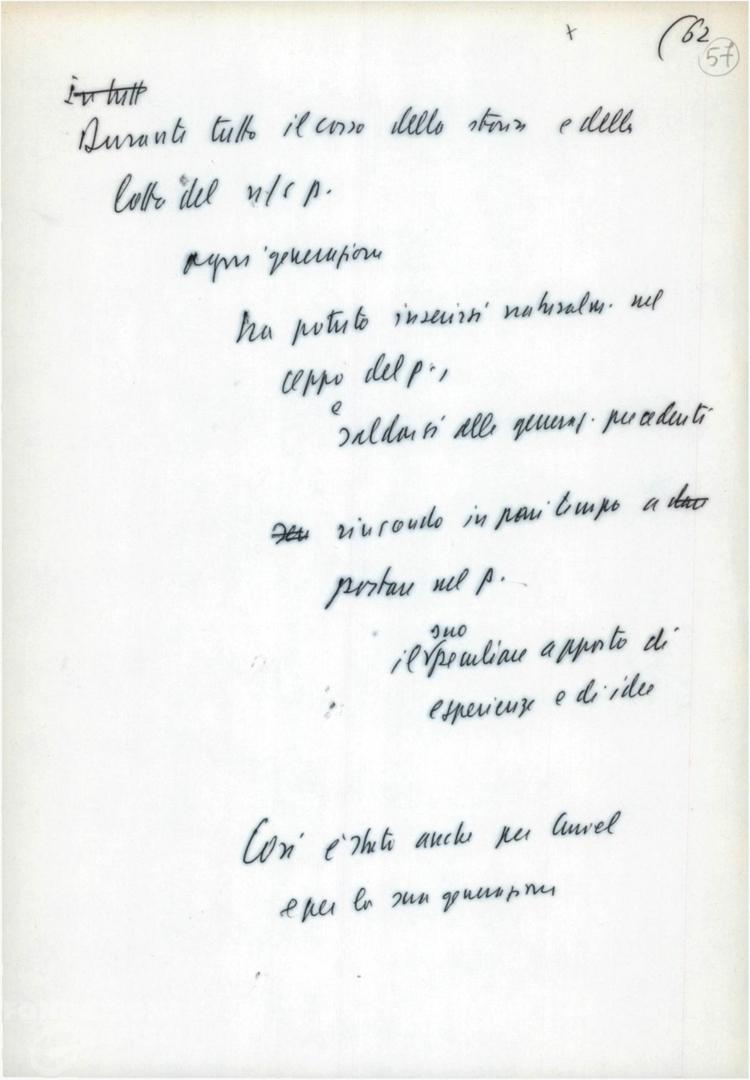 x (62
57
In tutt
Durante tutto il corso della storia e della
lotta del n/s p.
ogni generazione
ha potuto inserirsi naturalm. nel
ceppo del p.,
e
saldarsi alle generaz. precedenti
riuscendo in pari tempo a dar
portare nel p.
suo
il peculiare apporto di
esperienze e di idee
Così è stato anche per Curiel
e per la sua generazione